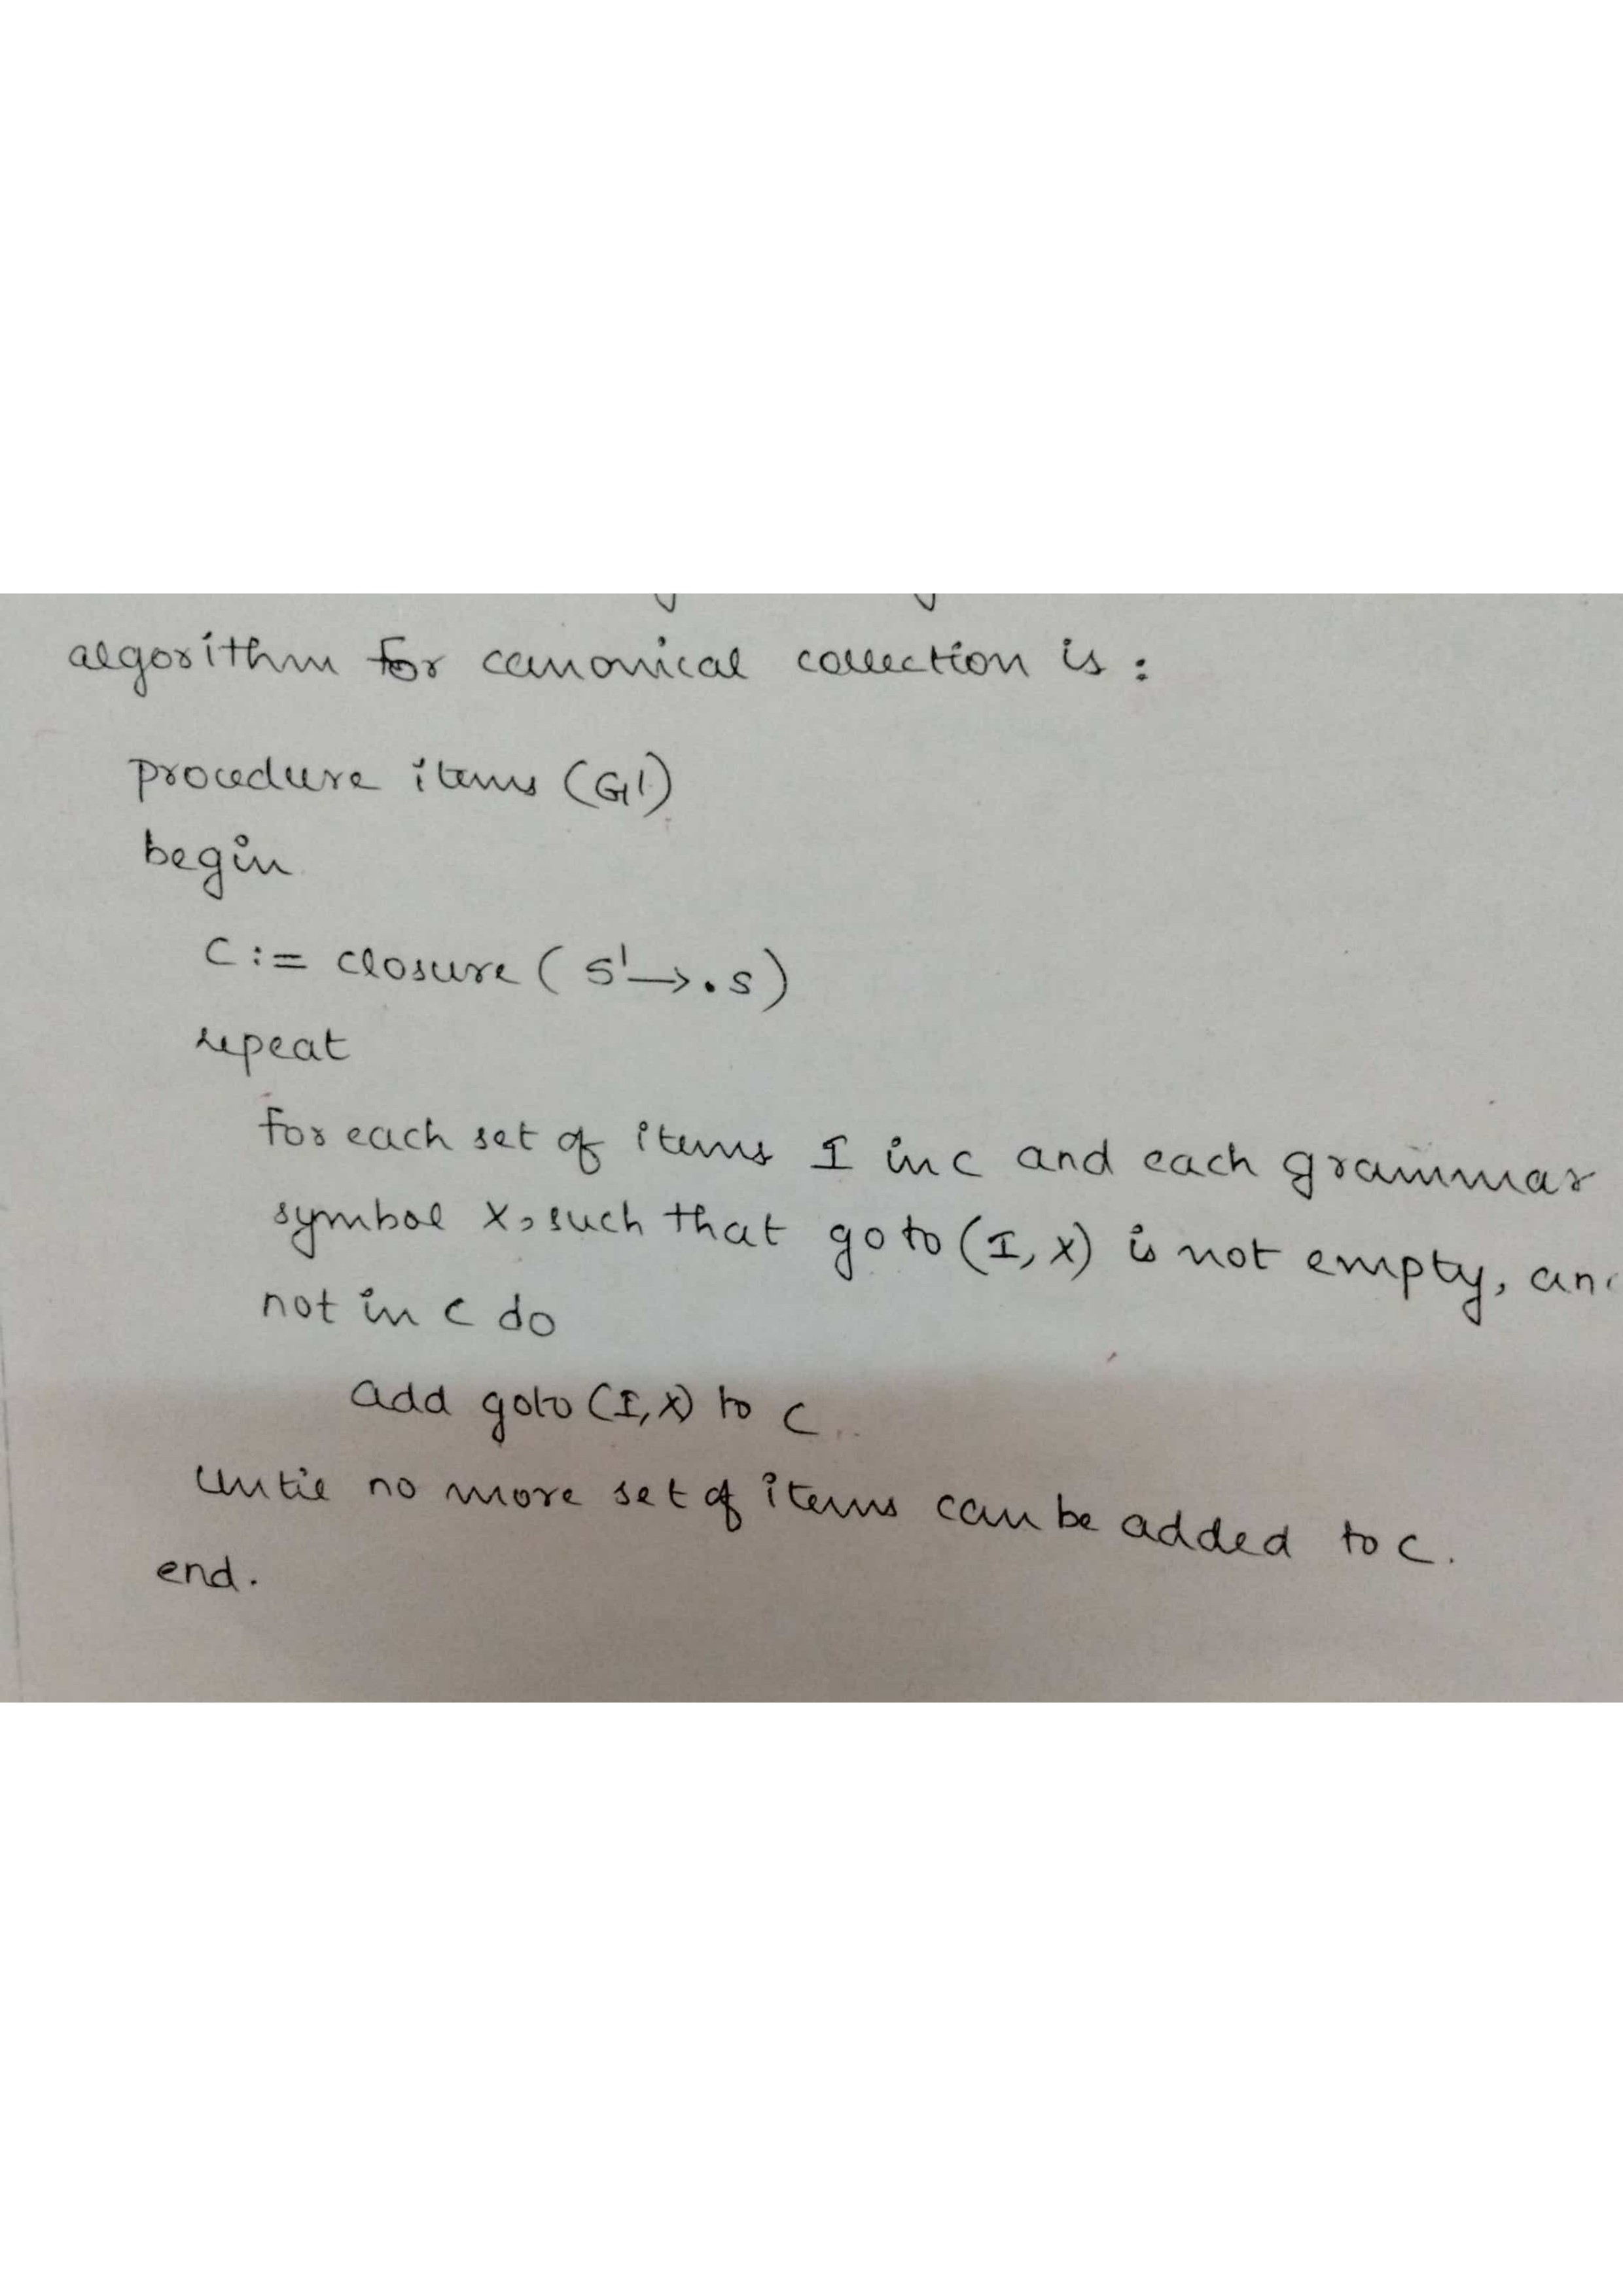 algorithm for canonical collection is :
procedure items (G')
begin
C := closure ( S' → . S )
repeat
for each set of items I in C and each grammar
symbol X, such that goto (I, X) is not empty,
not in C do
add goto (I, X) to C
until no more set of items can be added to C.
end.